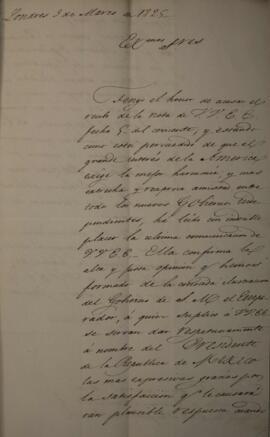 Londres 9 de Marzo de 1825.
Exmos Sres
Tengo el honor de acusar el
recibo de la Nota de VVEE
fecha 5 del corriente, y estando
como estoy persuadido de que el
grande interés de la America
exige la mejor harmonia, y mas
estrecha y reciproca amistad entre
todos los nuevos Gobiernos inde-
pendientes, he leido con indecible
placer la ultima comunicacion de
VVEE. Ella confirma la
alta y justa opinion q hemos
formado de la
del Gobierno de S. M. el Empe-
rador, á quien suplico á VVEE
se sirvan dar respetuosamente
á nombre del Presidente
de la Republica de Mexico
las mas expresivas gracias por
la satisfaccion q le causará
tan plausible respuesta,